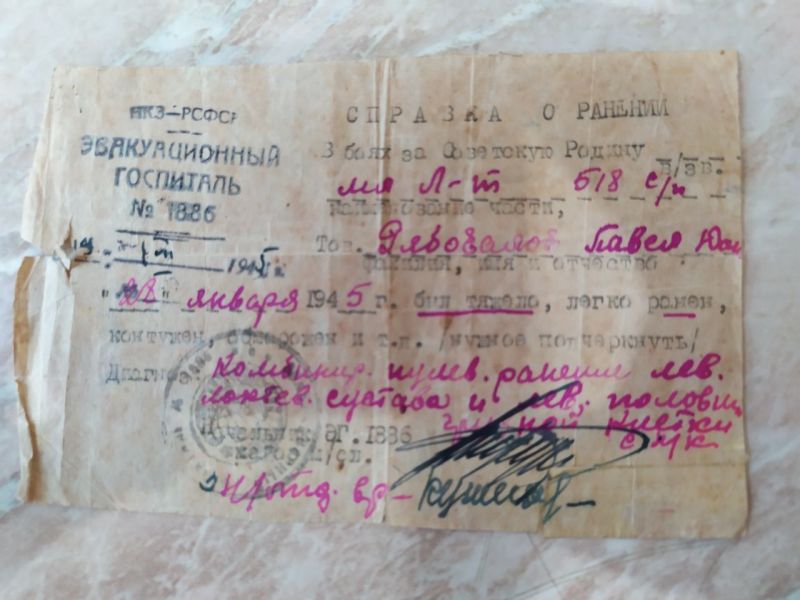 НКЗ—РСФСР
ЭВАКУАЦИОННЫЙ
ГОСПИТАЛЬ
№ 1886
194
СПРАВКА О РАНЕНИИ
В боях за Советскую Родину
мл Л-т 518 с/п
наименование части,
Тов. Павел
фамилия, имя и отчество
"28" января 1945 г. был тяжело, легко ранен,
контужен, обморожен и т.п. /нужное подчеркнуть/
Диагноз Комбинир. пулев. ранение лев.
локтев. сустава и лев. половин.
грудной клетки
ЭГ. 1886
майор м/сл.